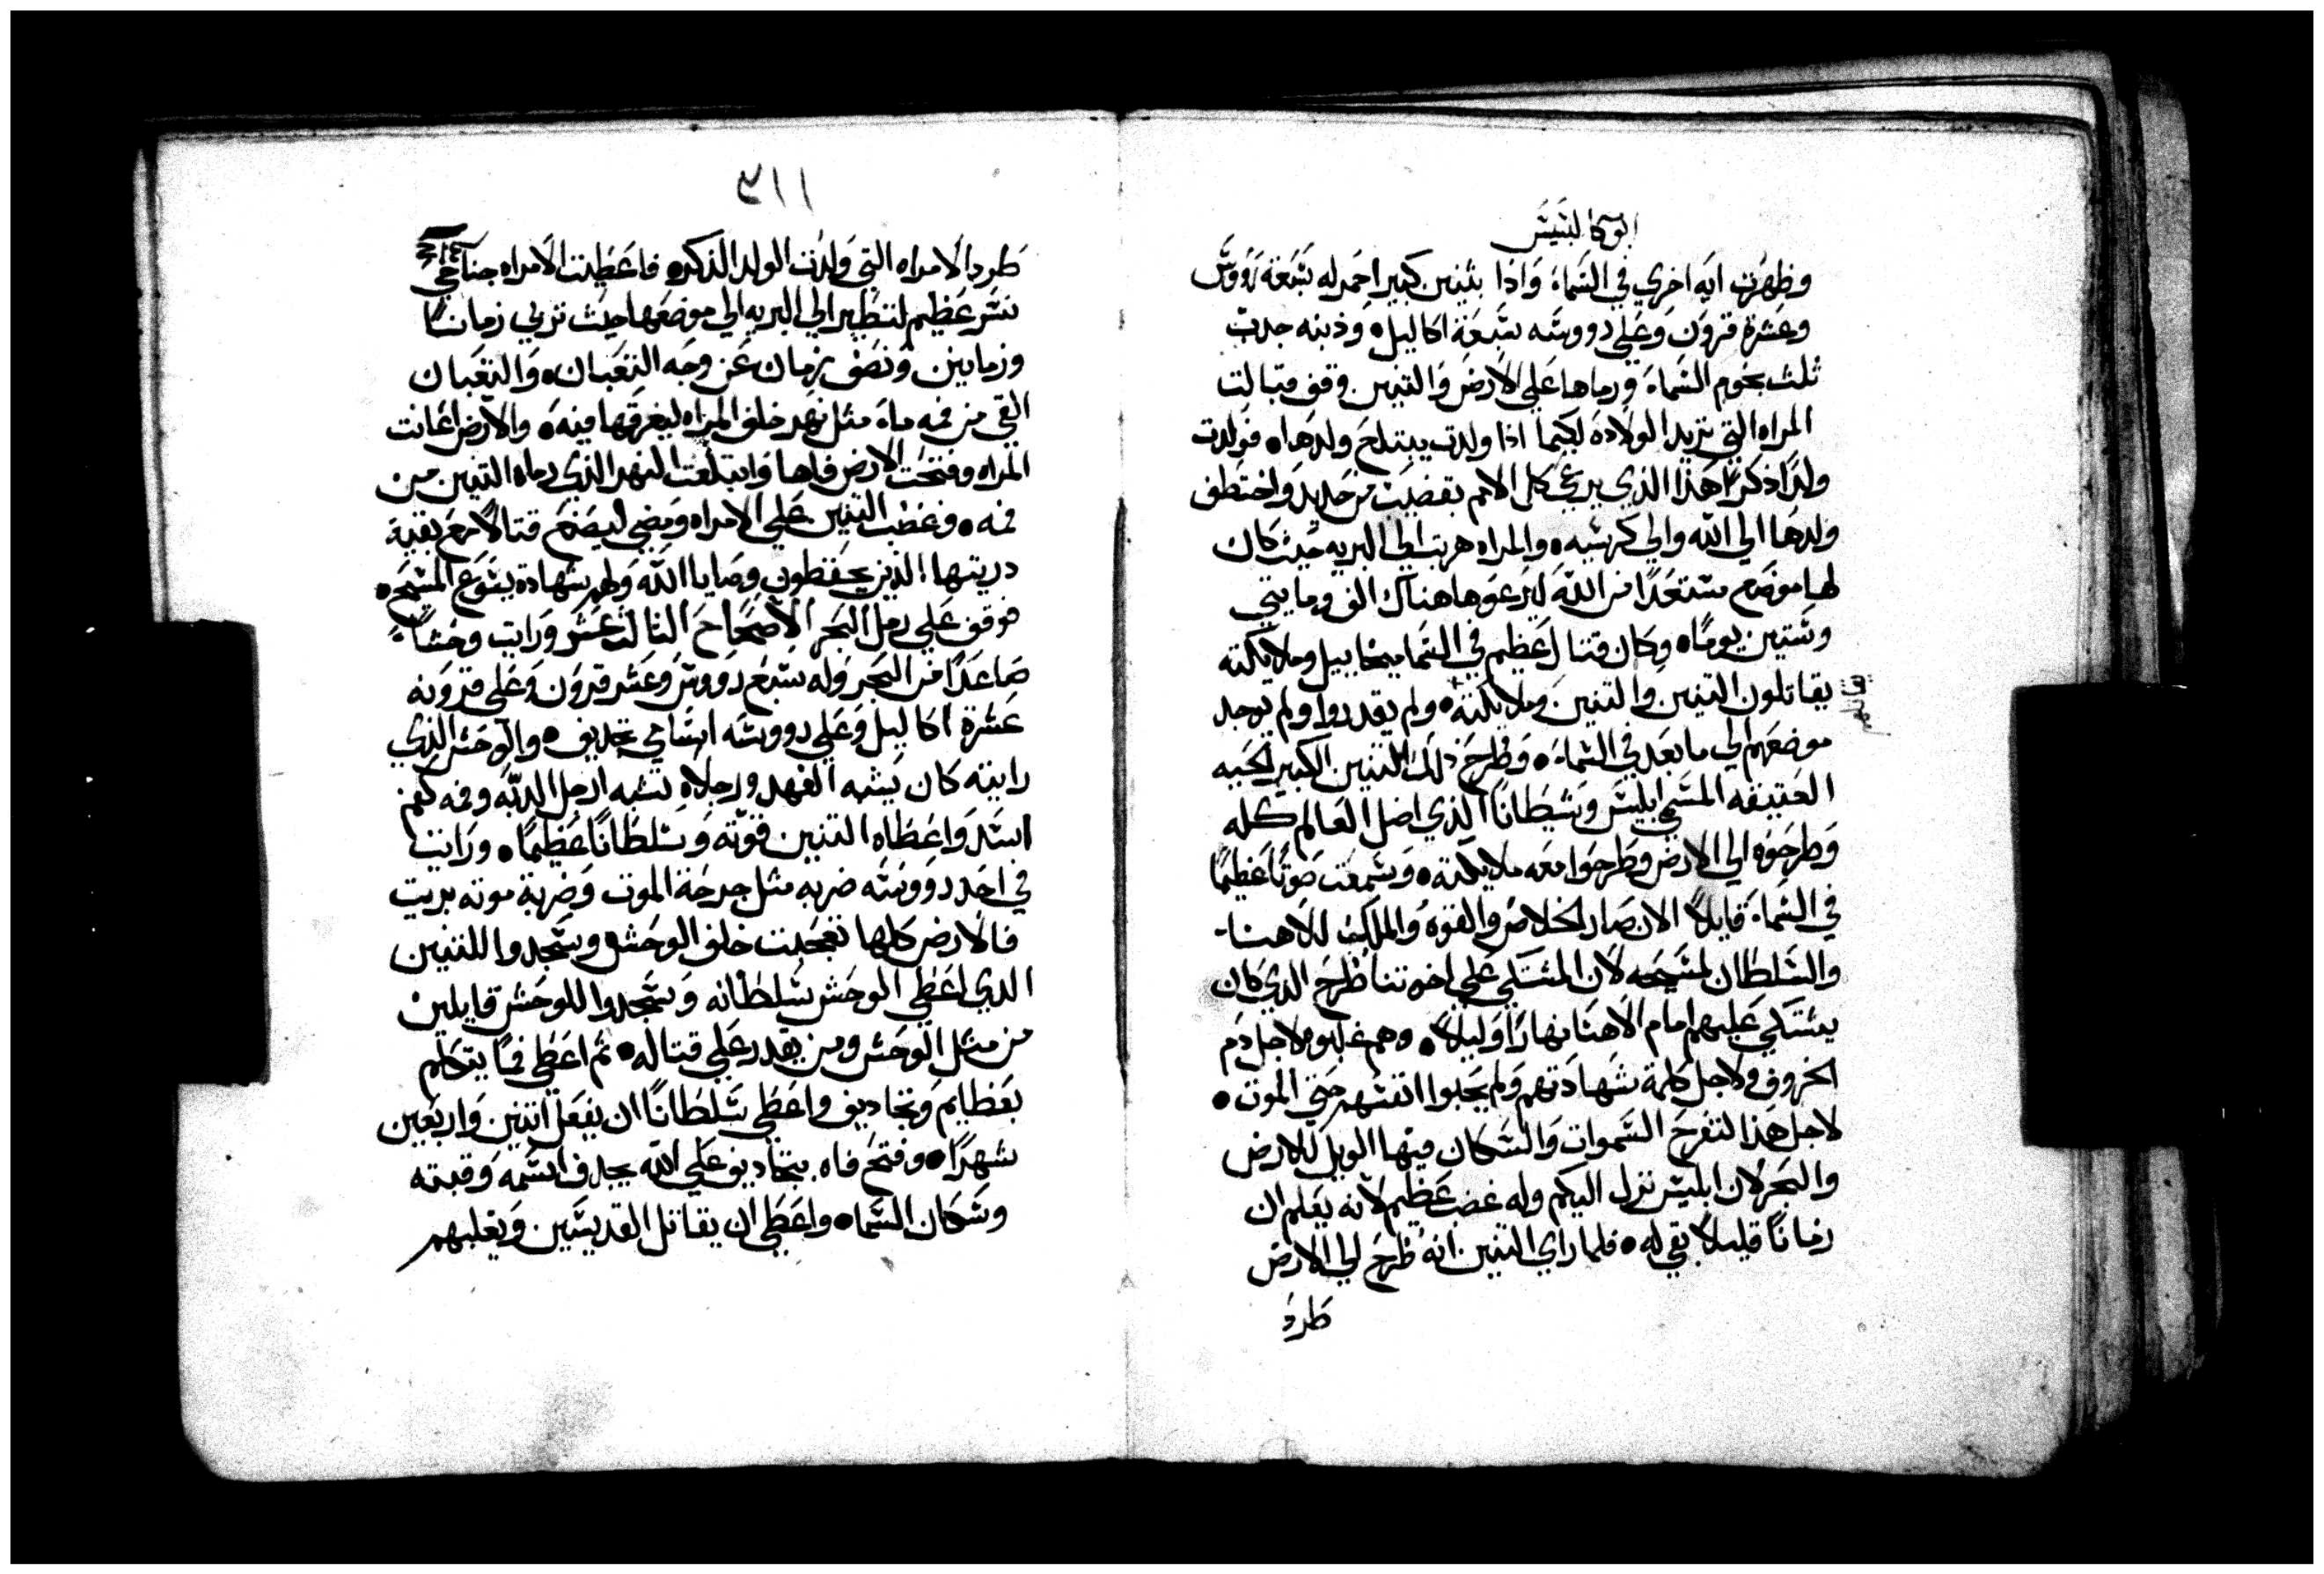 ابوكالبسيس
وظهرت ايه اخري في السماء واذا بتنين كبير احمر له سبعة رووس
وعشرة قرون وعلي رووسه سبعة اكاليل • وذنبه جدب
ثلث نجوم السماء ورماها علي الارض والتنين وقف قبالت
المراه التي تريد الولاده لكيما اذا ولدت يبتلع ولدها • فولدت
ولدًا ذكرًا هذا الذي يرعي كل الامم بقضيب من حديد واختطف
ولدها الي الله والي كرسيه • والمراه هربت الي البريه حيث كان
لها موضع مستعدًا من الله ليرعوها هناك الف ومايتي
وستين يومًا • وكان قتال عظيم في السما ميخاييل وملايكته
يقاتلون التنين والتنين وملايكته • ولم يقدروا ولم يوجد
موضعهم الي ما بعد في السماء • وطرح ذلك التنين الكبير الحيه
العتيقه المسمي ابليس وشيطانا الذي اضل العالم كله
وطرحوه الي الارض وطرحوا معه ملايكته • وسمعت صوتًا عظيمًا
في السماء قايلاً الان صار الخلاص والقوه والملك لالاهنا
والسلطان لمسيحه لان المشتكي علي اخوتنا طرح الذي كان
يشتكي عليهم امام الاهنا نهارًا وليلاً • وهم غلبوه لاجل دم
الخروف ولاجل كلمة شهادتهم ولم يحبوا انفسهم حتي الموت •
لاجل هذا لتفرح السموات والسكان فيها الويل للارض
والبحر لان ابليس نزل اليكم وله غضب عظيم لانه يعلم ان
زمانًا قليلاً بقي له • فلما راي التنين انه طرح الي الارض
طرد
٣١١
طرد الامراه التي ولدت الولد الذكر • فاعطيت الامراه جناحي
نسر عظيم لتطير الي البريه الي موضعها حيث تربي زمانًا
وزمانين ونصف زمان عن وجه الثعبان • والثعبان
القي من فمه ماء مثل نهر خلف المراه ليغرقها فيه • والارض اغانت
المراه وفتحت الارض فاها وابتلعت النهر الذي رماه التنين من
فمه • وغضب التنين علي الامراه ومضي ليصنع قتالاً مع بقية
دريتها الذين يحفظون وصايا الله ولهم شهادة يسوع المسيح •
فوقف علي رمل البحر الاصحاح الثالث عشر ورايت وحشًا
صاعدًا من البحر وله سبع رووس وعشر قرون وعلي قرونه
عشرة اكاليل وعلي رووسه اسامي تجديف • والوحش الذي
رايته كان يشبه الفهد ورجلاه تشبه ارجل الدبه وفمه كفم
اسد واعطاه التنين قوته وسلطانًا عظيمًا • ورايت
في احد رووسه ضربه مثل جرحة الموت وضربة موته بريت
فالارض كلها تعجبت خلف الوحش وسجدوا للتنين
الذي اعطي الوحش سلطانه وسجدوا للوحش قايلين
من مثل الوحش ومن يقدر علي قتاله • ثم اعطي فمًا يتكلم
بعظايم وتجاديف واعطي سلطانًا ان يفعل اثنين واربعين
شهرًا • وفتح فاه بتجاديف علي الله يجدف اسمه وقبته
وسكان السماء • واعطي ان يقاتل القديسين ويغلبهم